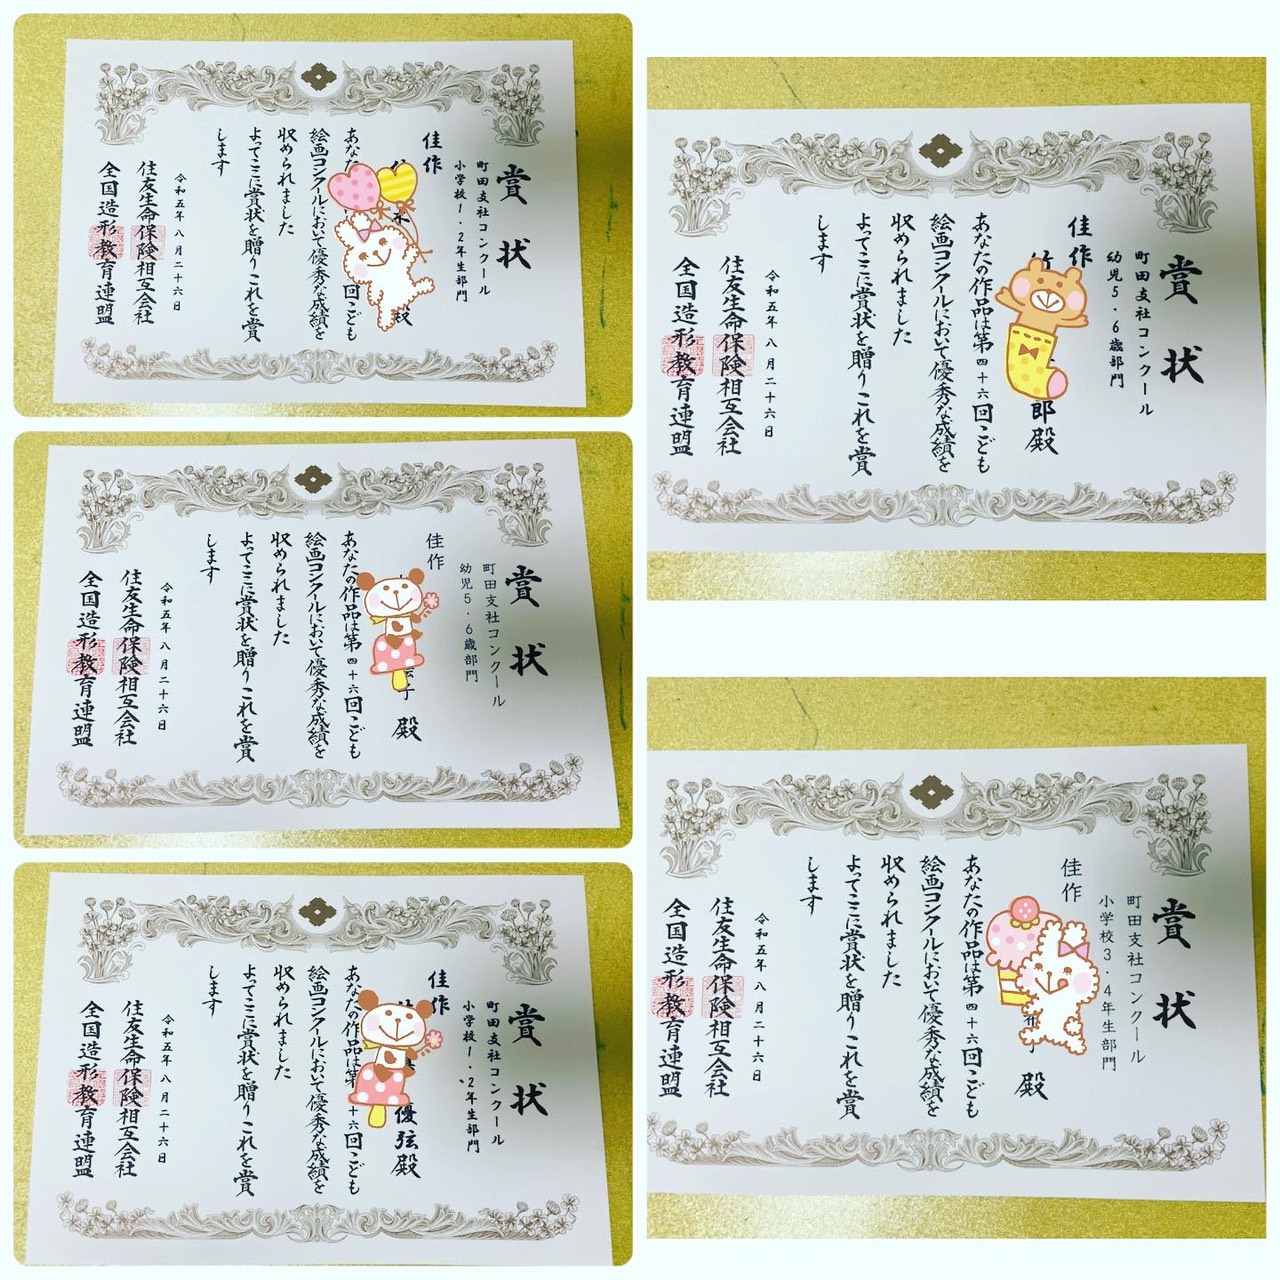 賞状
町田支社コンクール
小学校1・2年生部門
佳作
殿
あな 回こども
絵画コンクールにおいて優秀な成績を
収められました
よってここに賞状を贈りこれを賞
します
令和五年八月二十六日
住友生命保険相互会社
全国造形教育連盟
賞状
町田支社コンクール
幼児5・6歳部門
佳作
子 殿
あなたの作品は第四十六回こども
絵画コンクールにおいて優秀な成績を
収められました
よってここに賞状を贈りこれを賞
します
令和五年八月二十六日
住友生命保険相互会社
全国造形教育連盟
賞状
町田支社コンクール
小学校1・2年生部門
佳作
優弦殿
あなたの作品は第 十六回こども
絵画コンクールにおいて優秀な成績を
収められました
よってここに賞状を贈りこれを賞
します
令和五年八月二十六日
住友生命保険相互会社
全国造形教育連盟
賞状
町田支社コンクール
幼児5・6歳部門
佳作
郎殿
あなたの作品は第四十六回こども
絵画コンクールにおいて優秀な成績を
収められました
よってここに賞状を贈りこれを賞
します
令和五年八月二十六日
住友生命保険相互会社
全国造形教育連盟
賞状
町田支社コンクール
小学校3・4年生部門
佳作
殿
あなたの作品は第四十六回こども
絵画コンクールにおいて優秀な成績を
収められました
よってここに賞状を贈りこれを賞
します
令和五年八月二十六日
住友生命保険相互会社
全国造形教育連盟